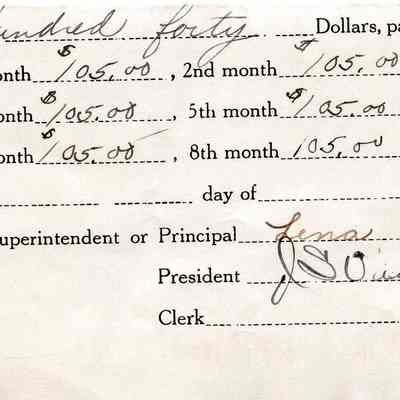 hundred forty Dollars, pa
onth $105.00, 2nd month $105.00
onth $105.00, 5th month $105.00
onth $105.00, 8th month 105.00
day of
uperintendent or Principal Lena
President J S
Clerk